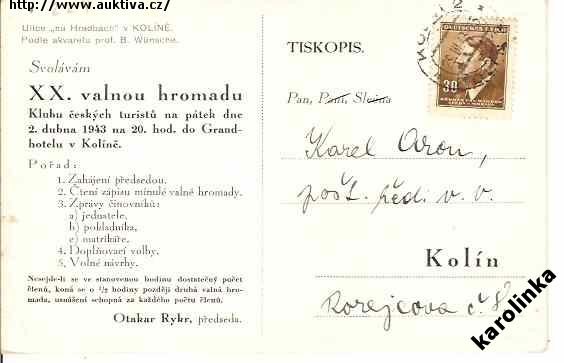 http://www.auktiva.cz/
Ulice „na Hradbach" v KOLÍNĚ.
Podle akvarelu prof. B. Wünsche.
Svolávám
XX. valnou hromadu
Klubu českých turistů na pátek dne
2. dubna 1943 na 20. hod. do Grand-
hotelu v Kolíně.
Pořad:
1. Zahájení předsedou.
2. Čtení zápisu minulé valné hromady.
3. Zprávy činovníků:
a) jednatele,
b) pokladníka,
c) matrikáře.
4. Doplňovací volby.
5. Volné návrhy.
Nesejde-li se ve stanovenou hodinu dostatečný počet
členů, koná se o ½ hodiny později druhá valná hro-
mada, usnášení schopná za každého počtu členů.
Otakar Rykr, předseda.
TISKOPIS.
Pan, Paní, Slečna
Karel Aron,
pošt. předi v. v.
Kolín
Korejcova č.
30
karolinka